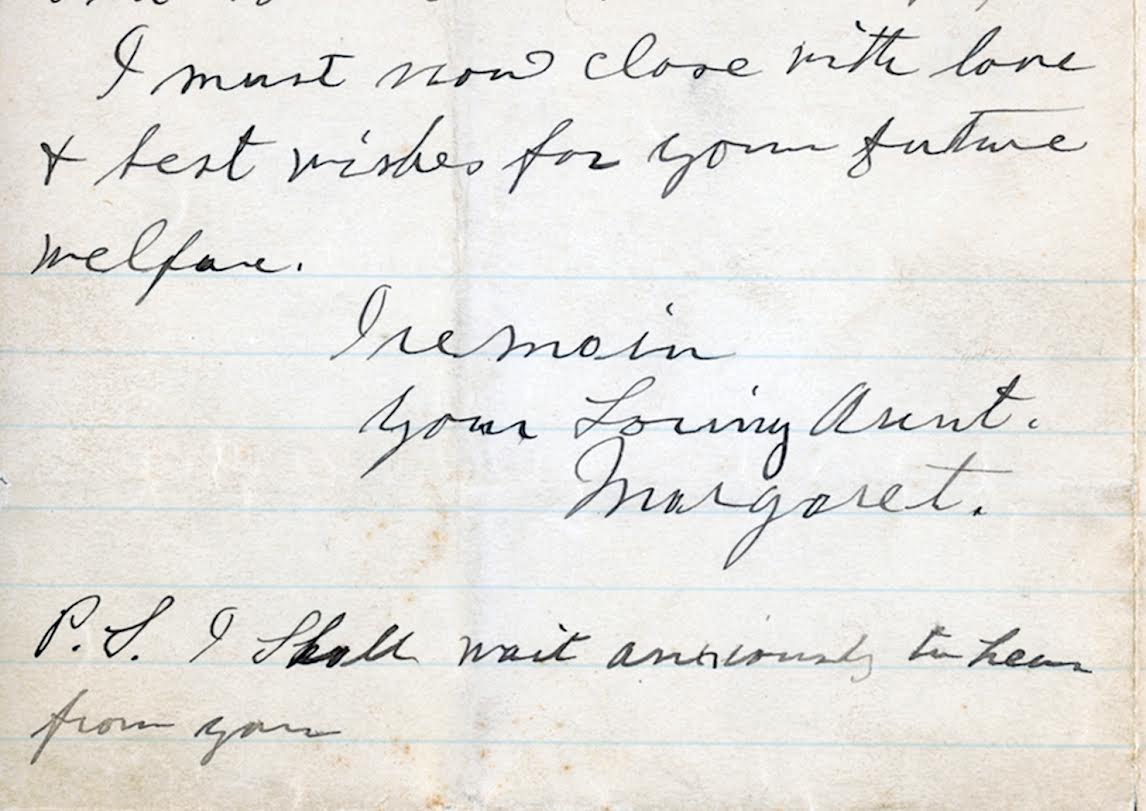 I must now close with love
& best wishes for your future
welfare.
I remain
your Loving Aunt.
Margaret.
P.S. I Shall wait anxiously to hear
from you